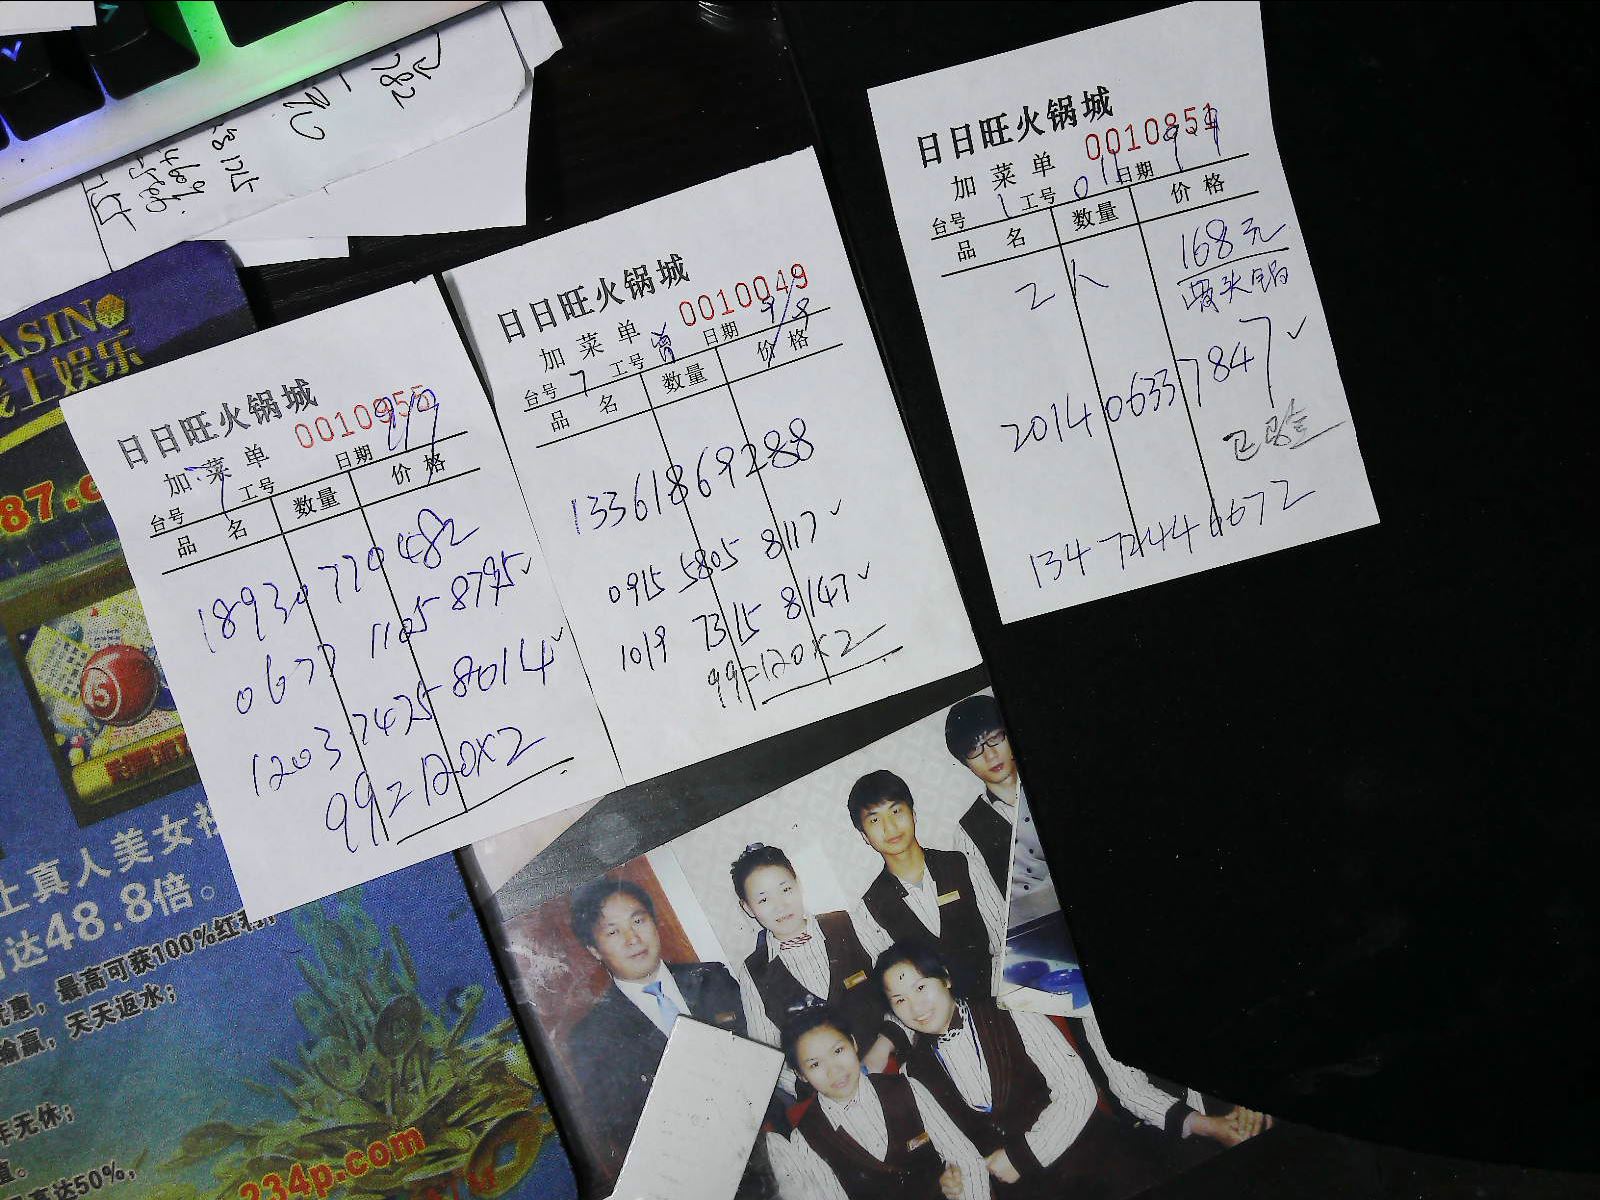 日日旺火锅城
0010955
加菜单
台号 1 工号 日期 9/9
品名 数量 价格
18930770482
0677 1105 8795✓
1203 7425 8014✓
99=120×2
日日旺火锅城
0010049
加菜单
台号 7 工号 日期 9/9
品名 数量 价格
13361869288
0915 5805 8117✓
1019 7315 8147✓
99=120×2
日日旺火锅城
0010851
加菜单
台号 1 工号 011 日期 9.9
品名 数量 价格
2人 168元
骨头锅
2014 0633 7847✓
已验
134 7244 6672
782
ASINO
线上娱乐
87.c
上真人美女
达48.8倍。
惠，最高可获100%红利，
输赢，天天返水；
年无休；
高达50%，
234p.com